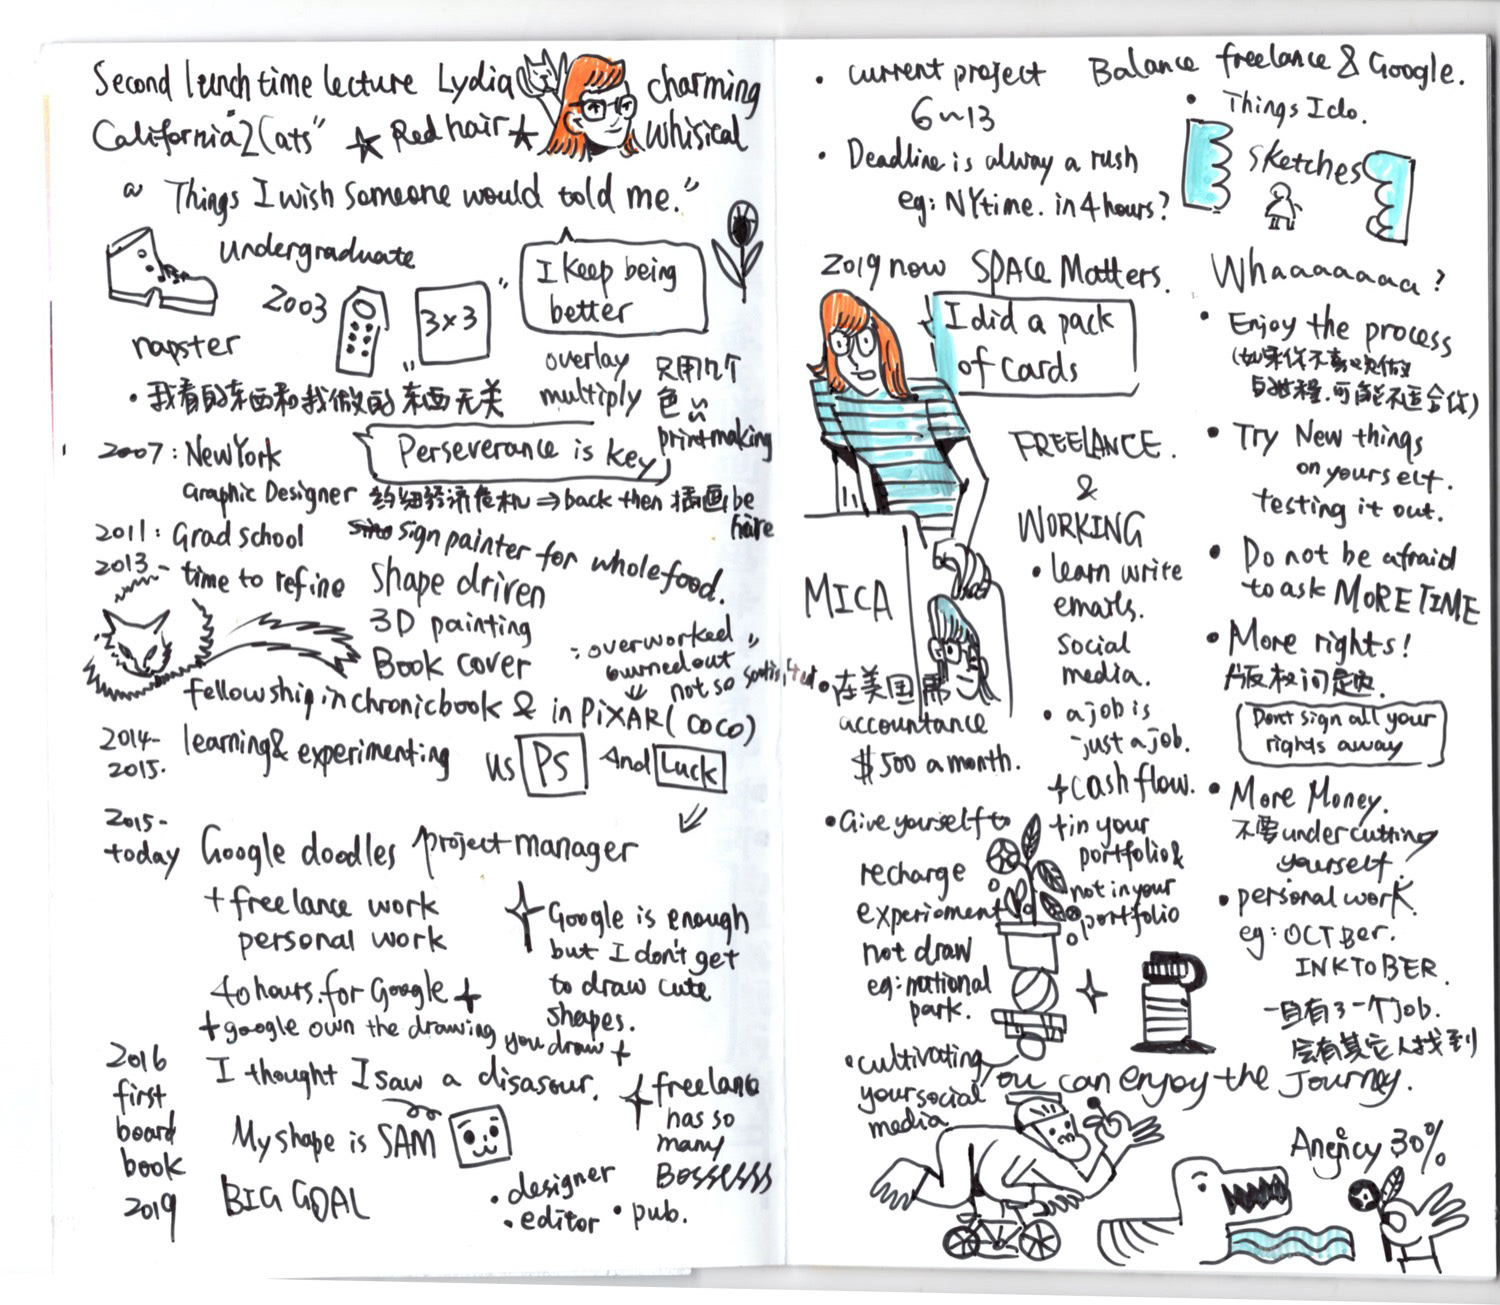 Second lunchtime lecture Lydia charming
California "2 Cats" Red hair whisical
"Things I wish someone would told me."
undergraduate
2003
3x3
napster
I keep being
better
overlay
multiply
只用几个
色
printmaking
• 我看的东西和我做的东西无关
2007: NewYork
Perseverance is key
Graphic Designer 约纽经济危机 ⇒ back then 插画 be
hare
2011: Grad school sign painter for whole food.
2013 - time to refine shape driven
3D painting
Book cover
: overworked
burnedout
not so
fellowship in chronicbook & in PiXAR (COCO)
2014-
2015. learning & experimenting us PS And Luck
2015-
today Google doodles project manager
+ freelance work
personal work
40 hours. for Google +
+ google own the drawing you draw +
Google is enough
but I don't get
to draw cute
shapes.
2016
first
board
book
I thought I saw a disasour.
My shape is SAM
freelance
has so
many
Bossssss
2019 BIG GOAL
• designer
• editor • pub.
• current project
6~13
• Deadline is alway a rush
eg: NYtime. in 4 hours?
Balance freelance & Google.
• Things I do.
sketches
2019 now SPACE Matters.
I did a pack
of cards
MICA
• 在美国
accountance
$500 a month.
• Give yourself to
recharge
experioment
not draw
eg: national
park.
• cultivating
your social
media
FREELANCE.
&
WORKING
• learn write
emails.
social
media.
• a job is
just a job.
+ cash flow.
+ in your
portfolio &
not in your
portfolio
Whaaaaaaa?
• Enjoy the process
(如果你不享受做
可能不适合你)
• Try New things
on yourself.
testing it out.
• Do not be afraid
to ask MORE TIME
• More rights!
版权问题.
Dont sign all your
rights away
• More Money.
不要 undercutting
yourself!
• personal work.
eg: OCTBer.
INKTOBER.
一旦有了一个Job.
会有其它人找到
You can enjoy the Journey.
Angency 30%